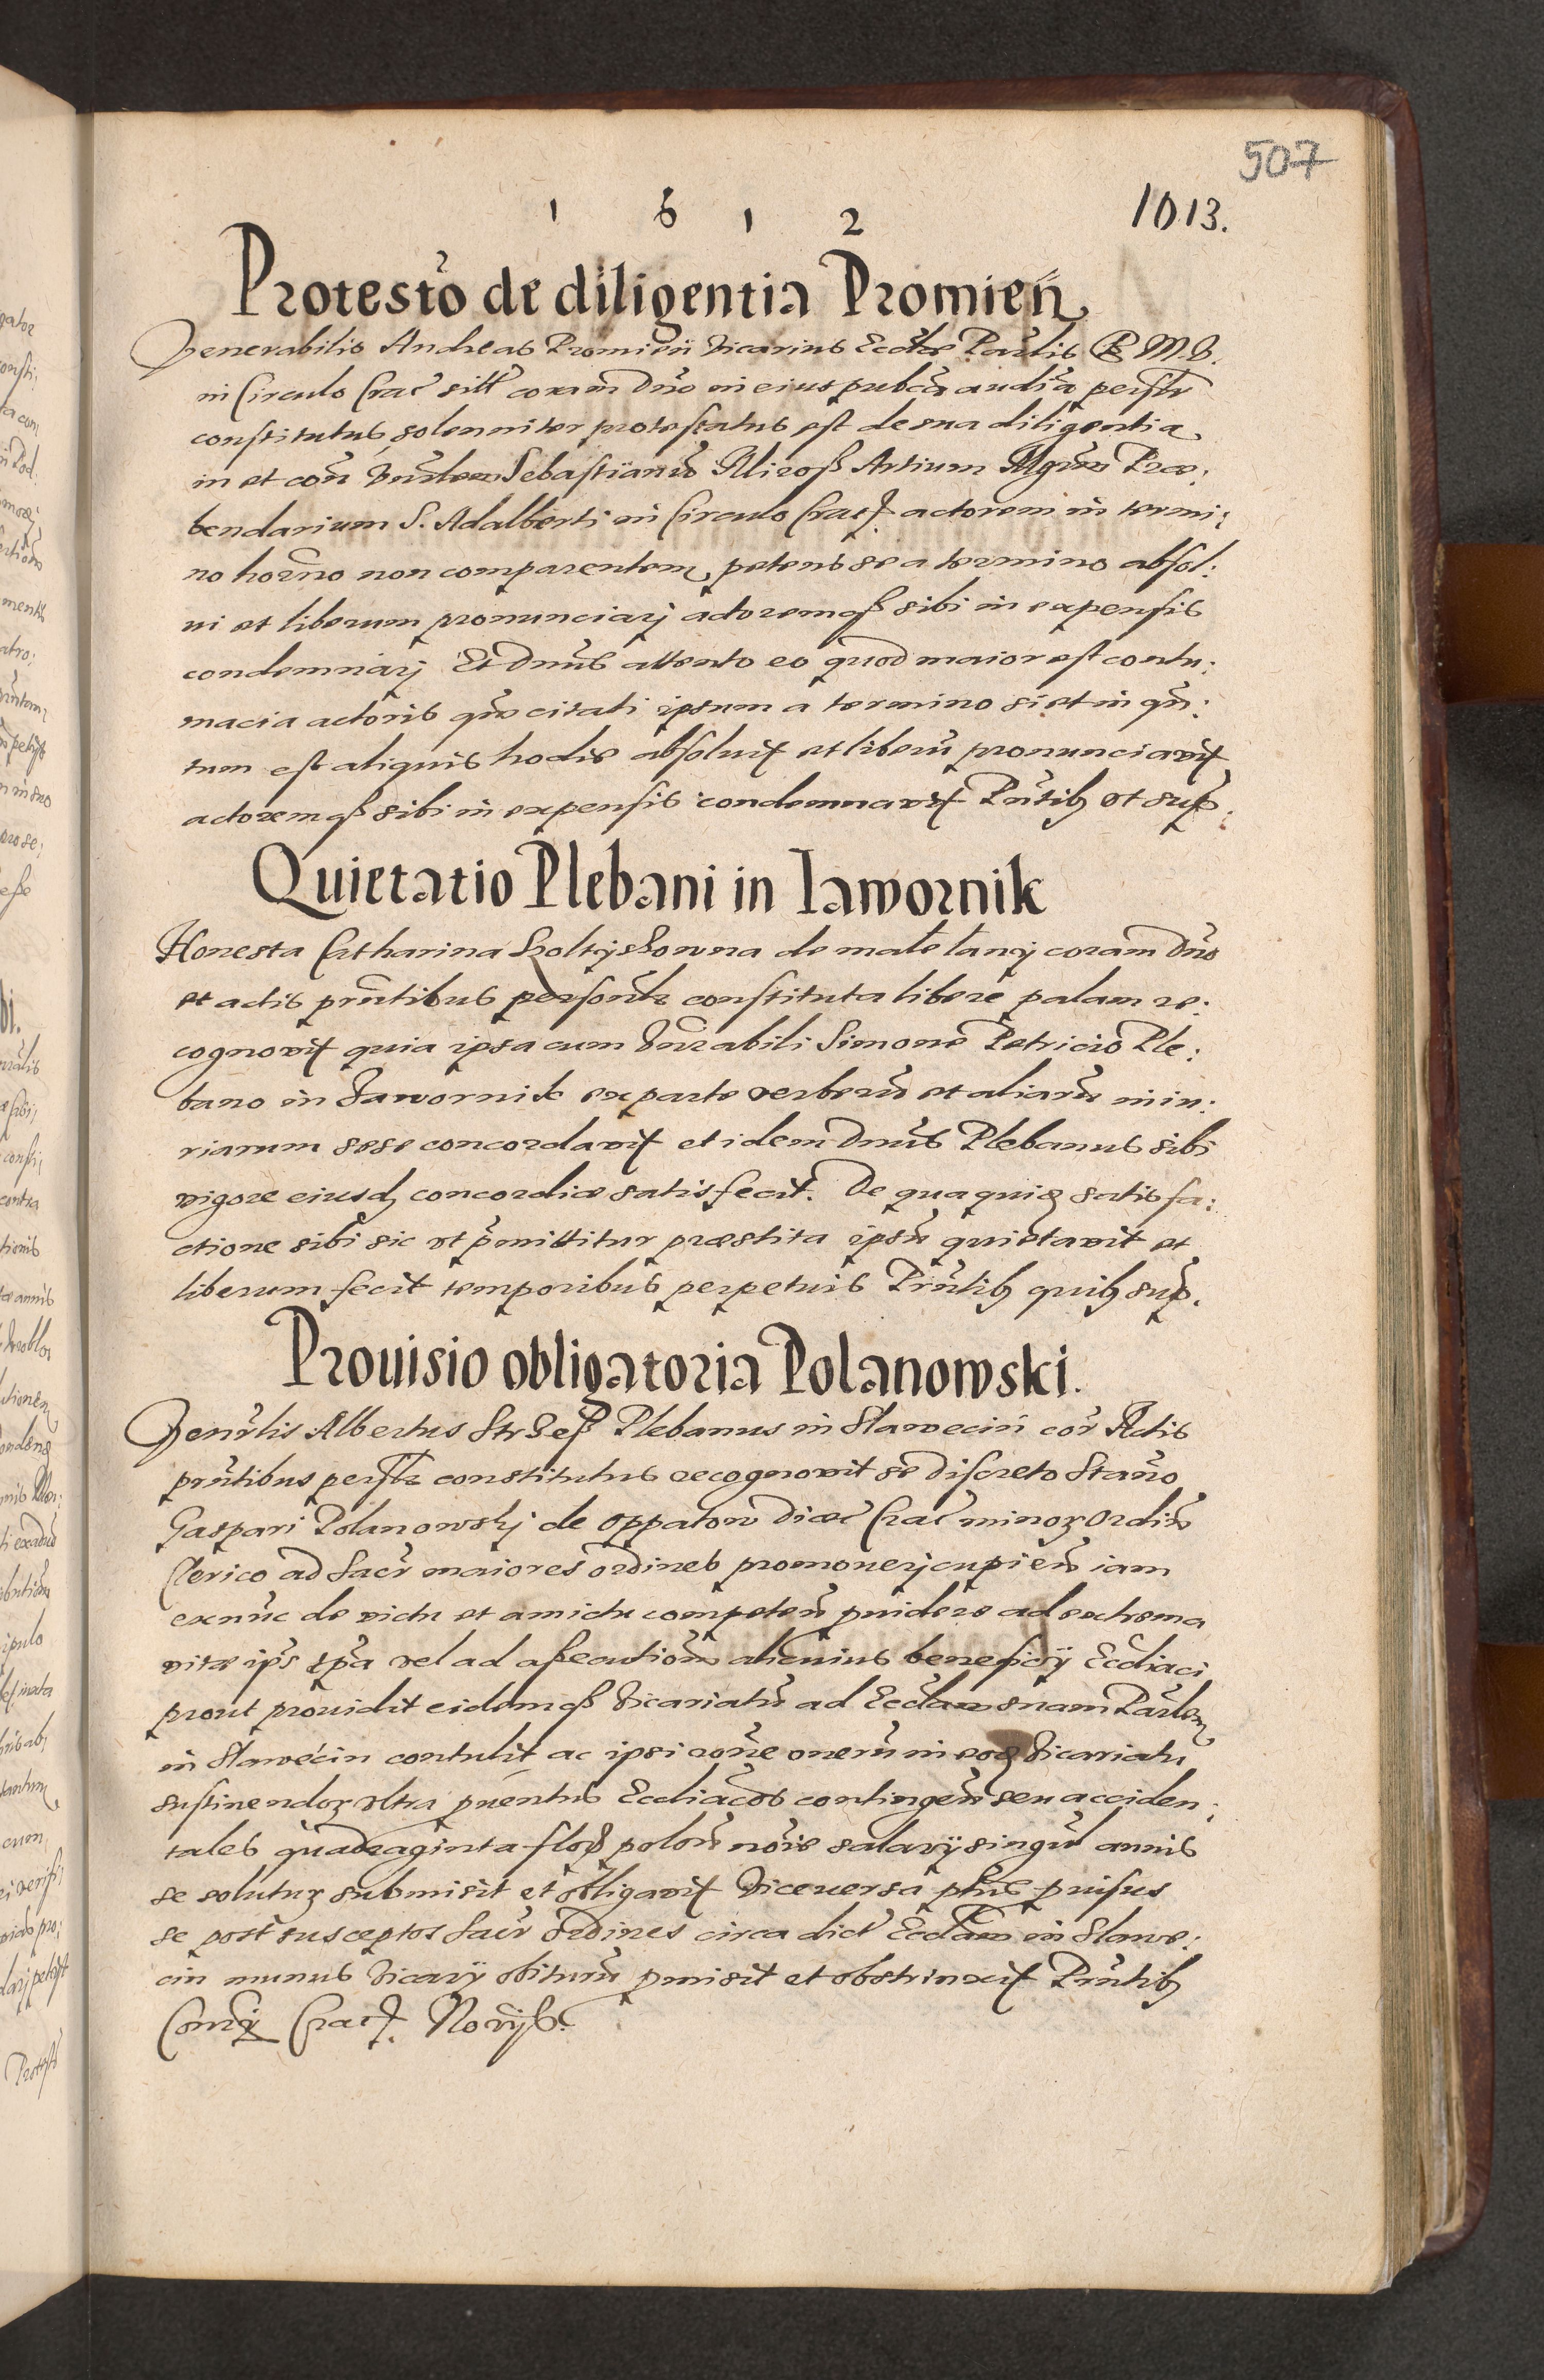 507
1 6 1 2
1013.
Protesto de diligentia Promień
Venerabilis Andreas Promień Vicarius Ecclae Parlis B. M. V.
in Circulo Crac sitt coram Dno in eius pubca audia perslr
constitutus, solenniter protestatus est de sua diligentia
in et con Vnrlem Sebastianu Miroß Artium Mgrm Præ:
bendarium S. Adalberti in Circulo Crac. actorem in termi:
no horno non comparentem, petens se a termino absol:
ui et liberum pronunciarj actoremqß sibi in expensis
condemnarj Et Dnus attento eo quod maior est contu:
macia actoris qua citati ipsum a termino si et in qn:
tum est aliquis hodie absoluit et liberu pronunciavit
actoremqß sibi in expensis condemnavit Pntibz ut sup.
Quietatio Plebani in Iawornik
Honesta Catharina Sholtyskowna de małe łany coram Dno
et actis prntibus personlr constituta libere palam re:
cognovit quia ipsa cum Vnrabili Simone Petricio Ple:
bano in Iawornik ex parte verberu et aliaru iniu:
riarum sese concordavit et idem Dnus Plebanus sibi
vigore eiusd concordiæ satisfecit. De qua quiq satisfa:
ctione sibi sic ut pmittitur præstita ipsu quietavit et
liberum fecit temporibus perpetuis Prntibz quibz sup.
Prouisio obligatoria Polanowski.
Venrlis Albertus Plebanus in Slawecin cor Actis
prntibus perslr constitutus recognovit se discreto Stano
Gaspari Polanowskj de Oppatow diæc Crac minoz Ordin
Clerico ad Sacr maiores ordines promouerj cupien iam
exnuc de victu et amictu competen puidere ad extrema
vitæ ips tpa vel ad aßecutione alicuius beneficij Eccliaci
prout prouidit eidemqß Vicariatu ad Ecclam suam Parlem
in Slawecin contulit ac ipsi rone oneru in eoq Vicariatu
sustinendoz ultra puentus Eccliacos contingen seu acciden:
tales quadraginta floß polon noie salarij singul annis
se soluturz submisit et obligavit Viceversa phs puisus
se post susceptos Sacr Ordines circa dict Ecclam in Slawe:
cin munus Vicarij obituru pmisit et obstrinxit Prntibz
Crac. Norijs.